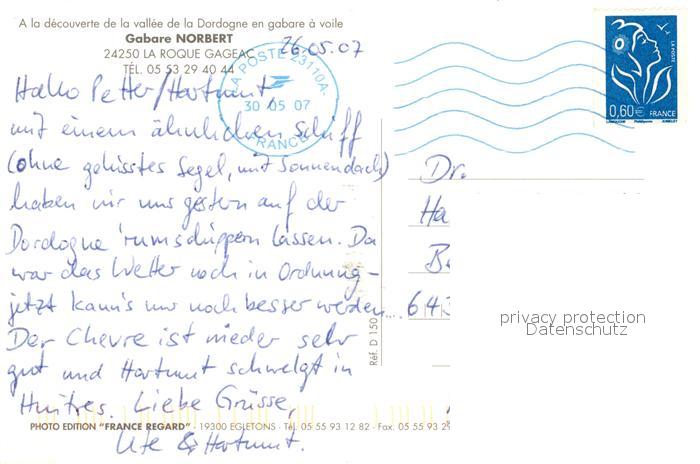 A la découverte de la vallée de la Dordogne en gabare à voile
Gabare NORBERT
24250 LA ROQUE GAGEAC
TÉL. 05 53 29 40 44
26.05.07
LA POSTE 23110A-
30 05 07
FRANCE
LA POSTE
0,60€ FRANCE
Hallo Petter/Hartmut
mit einem ähnlichen Schiff
(ohne gehisstes Segel, mit Sonnendach)
haben wir uns gestern auf der
Dordogne 'rumschippern lassen. Da
war das Wetter noch in Ordnung -
jetzt kann's nur noch besser werden...
Der Chevre ist wieder sehr
gut und Hartmut schwelgt in
Huitres. Liebe Grüsse,
Ute & Hartmut.
Dr.
Ha
B
643
privacy protection
Datenschutz
Réf. D 150
PHOTO EDITION "FRANCE REGARD" - 19300 EGLETONS - Tél. 05 55 93 12 82 - Fax. 05 55 93 29